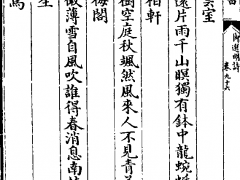 御選明詩 卷九十
室
遠片雨千山暝獨有鉢中龍蜿
柏軒
樹空庭秋颯然風來人不見青
梅閣
微薄雪自風吹誰得春消息南